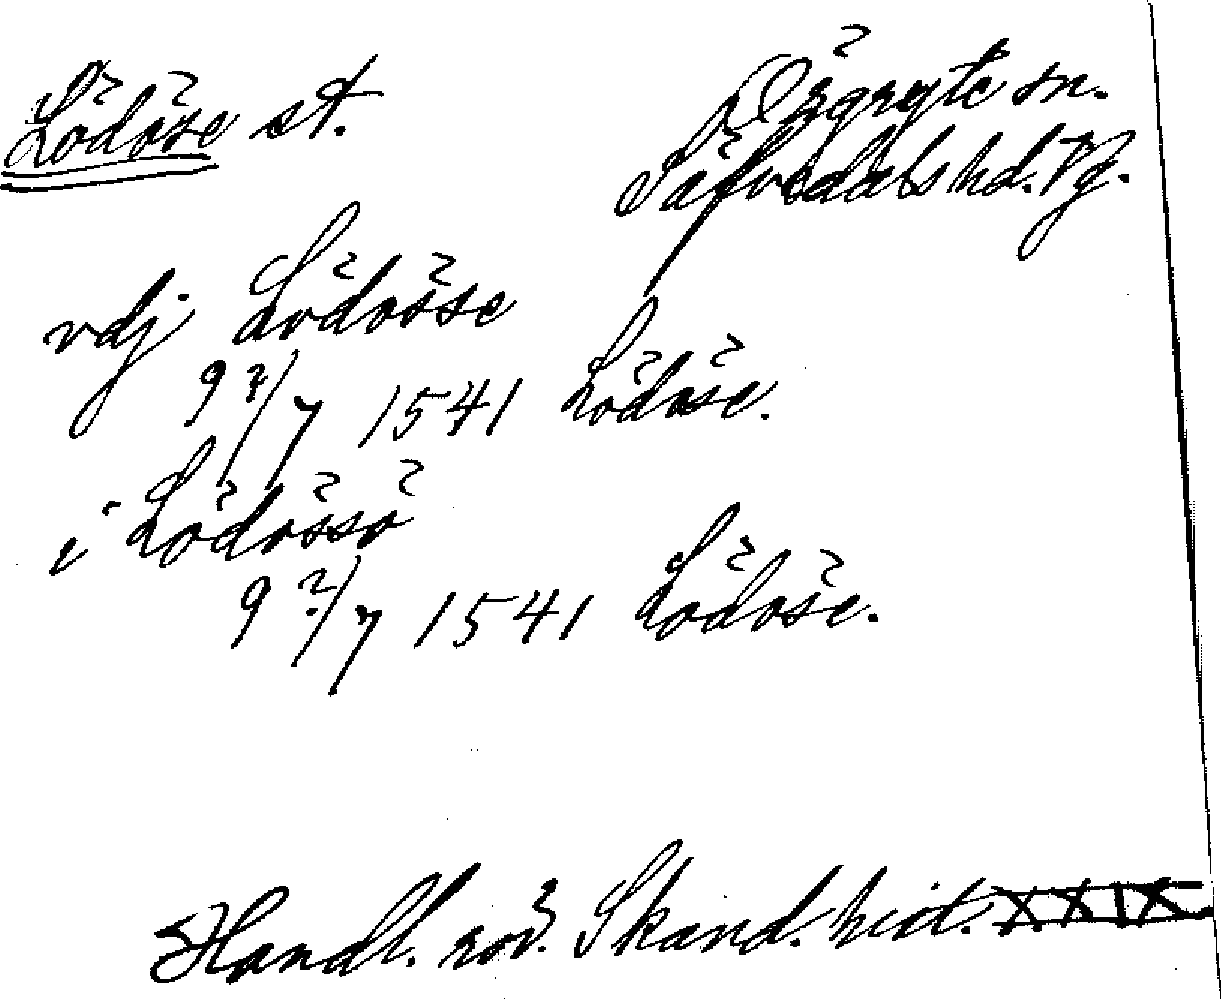 Lödöse st.
Örgryte sn.
Säfvedals hd. Vg.
vdj Lödösse
9 2/7 1541 Lödöse.
i Lödössö
9 2/7 1541 Lödöse.
Handl. rör. Skand. hist. XXIX